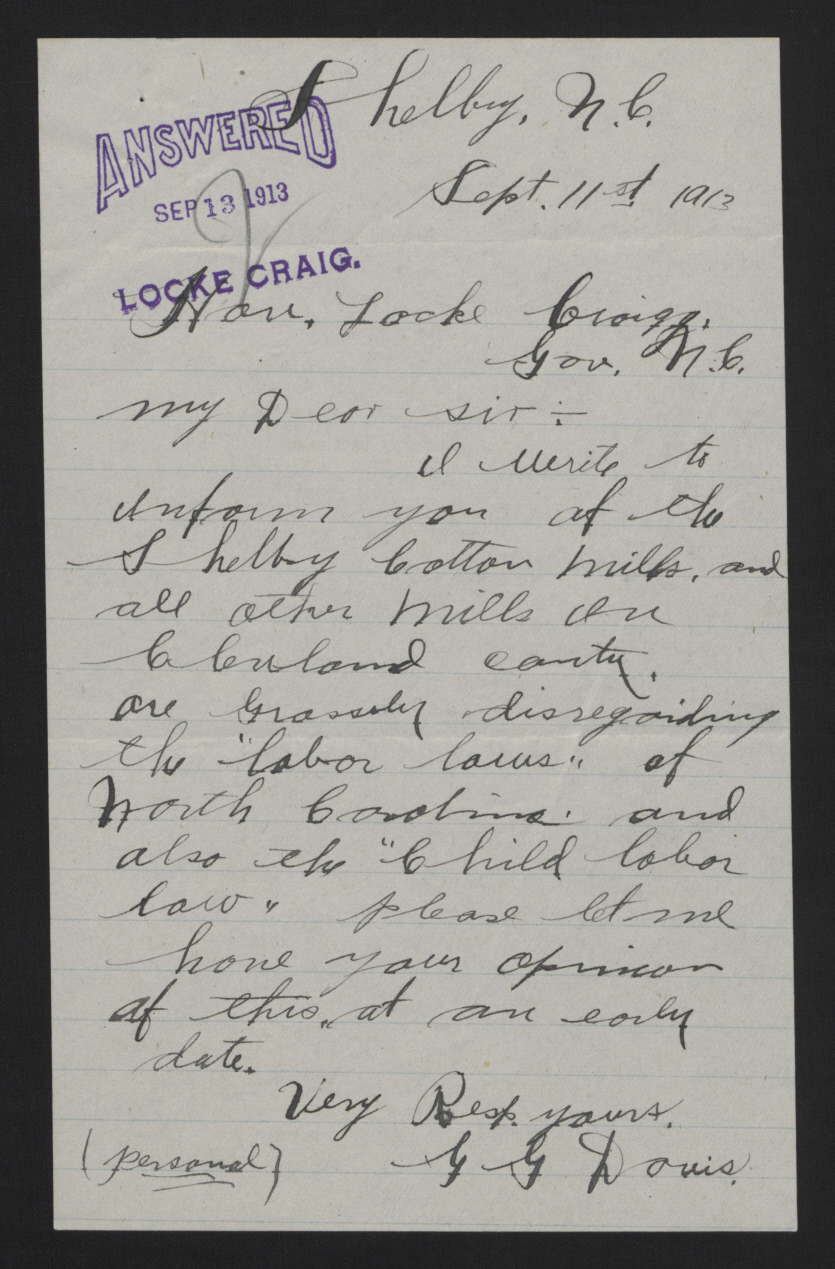 Shelby, N.C.
ANSWERED
SEP 13 1913
LOCKE CRAIG.
Sept. 11st 1913
Hon. Locke Craigg.
Gov. N.C.
my Dear sir :-
I write to
inform you of the
Shelby Cotton Mills, and
all other Mills in
Clevland conty.
are Grossely disregarding
the "labor laws" of
North Carolina. and
also the "Child labor
law" please let me
have your opinion
of this, at an early
date.
Very Resp. yours.
(personal) G G Davis.